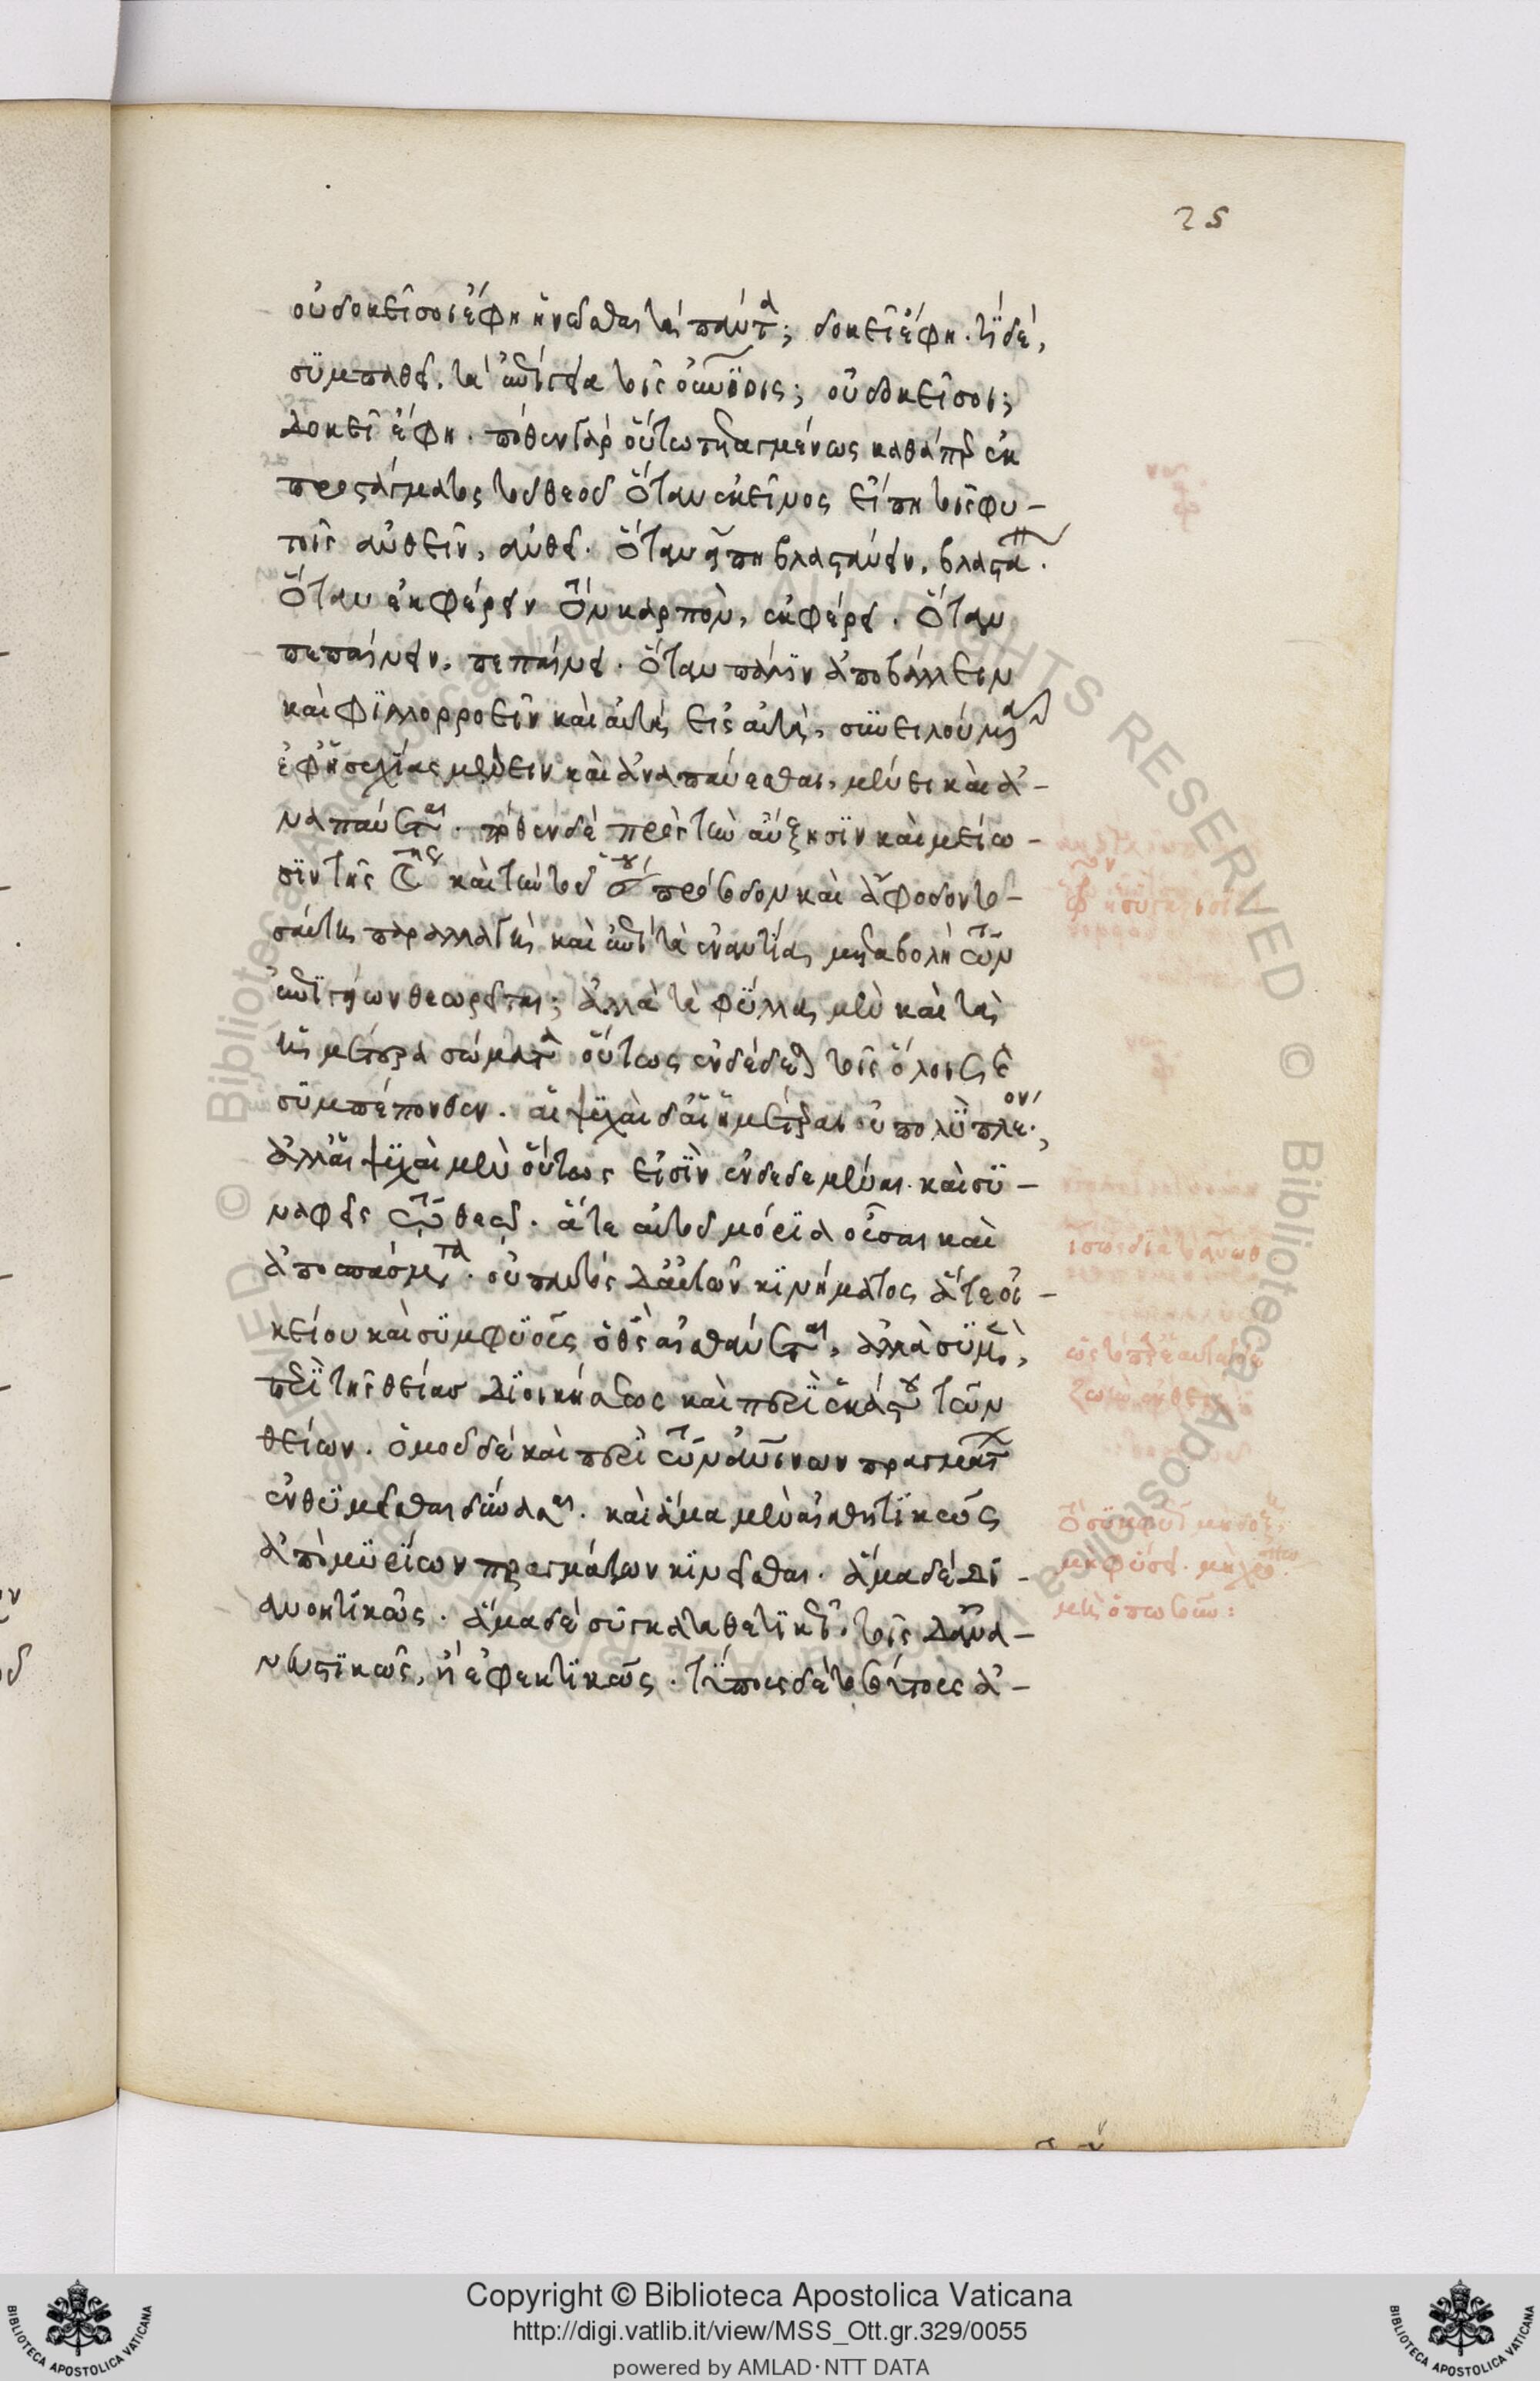 25
οὐ δοκεῖ σοι ἔφη ἡνῶσθαι τὰ πάντα; δοκεῖ ἔφη. τί δέ,
συμπαθεῖν τὰ ἐπίγεια τοῖς οὐρανίοις; οὐ δοκεῖ σοι;
δοκεῖ ἔφη. πόθεν γὰρ οὕτω τεταγμένως καθάπερ ἐκ
προστάγματος τοῦ θεοῦ ὅταν ἐκεῖνος εἴπῃ τοῖς φυ-
τοῖς ἀνθεῖν, ἀνθεῖ. ὅταν εἴπῃ βλαστάνειν, βλαστάνει.
ὅταν ἐκφέρειν τὸν καρπὸν, ἐκφέρει. ὅταν
πεπαίνειν, πεπαίνει. ὅταν πάλιν ἀποβάλλειν
καὶ φυλλορροεῖν καὶ αὐτὰ εἰς αὑτὰ συνειλούμενα
ἐφ' ἡσυχίας μένειν καὶ ἀναπαύεσθαι, μένει καὶ ἀ-
ναπαύεται. πόθεν δὲ πρὸς τὴν αὔξησιν καὶ μείω-
σιν τῆς σελήνης καὶ τὴν τοῦ ἡλίου πρόσοδον καὶ ἄφοδον το-
σαύτη παραλλαγὴ καὶ ἐπὶ τὰ ἐναντία μεταβολὴ τῶν
ἐπιγείων θεωρεῖται; ἀλλὰ τὰ φύλλα μὲν καὶ τὰ
ἡμέτερα σώματα οὕτως ἐνδέδεται τοῖς ὅλοις καὶ
συμπέπονθεν. αἱ ψυχαὶ δ' αἱ ἡμέτεραι οὐ πολὺ πλέον;
ἀλλ' αἱ ψυχαὶ μὲν οὕτως εἰσὶν ἐνδεδεμέναι καὶ συ-
ναφεῖς τῷ θεῷ. ἅτε αὐτοῦ μόρια οὖσαι καὶ
ἀποσπάσματα. οὐ παντὸς δ' αὐτῶν κινήματος ἅτε οἰ-
κείου καὶ συμφυοῦς ὁ θεὸς αἰσθάνεται, ἀλλὰ σὺ μὲν
περὶ τῆς θείας διοικήσεως καὶ περὶ ἑκάστου τῶν
θείων. ὁμοῦ δὲ καὶ περὶ τῶν ἀνθρωπίνων πραγμάτων
ἐνθυμεῖσθαι δύνασαι. καὶ ἅμα μὲν αἰσθητικῶς
ἀπὸ μυρίων πραγμάτων κινεῖσθαι. ἅμα δὲ δι-
ανοητικῶς. ἅμα δὲ συγκαταθετικῶς, τοῖς δ' ἀνα-
νευστικῶς, ἢ ἐφεκτικῶς. τύπους δὲ τοσούτους ἀ-
Copyright © Biblioteca Apostolica Vaticana
http://digi.vatlib.it/view/MSS_Ott.gr.329/0055
powered by AMLAD·NTT DATA